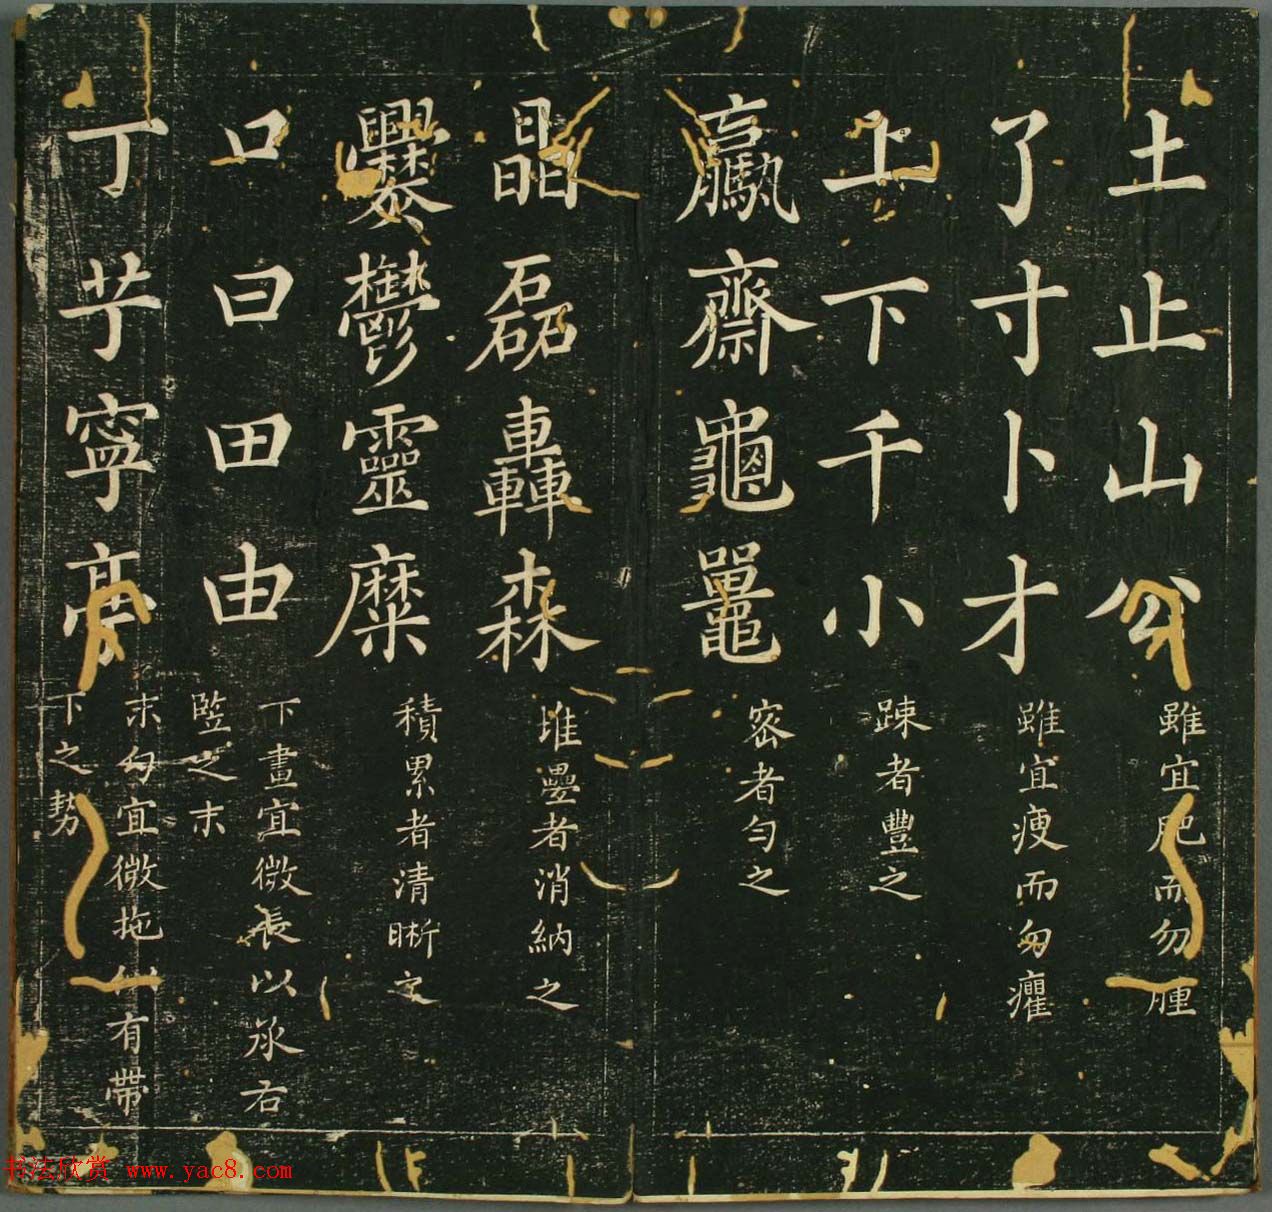 土止山公
雖宜肥而勿腫
了寸卜才
雖宜瘦而勿癯
上下千小
踈者豐之
羸齋龜鼉
密者勻之
晶磊轟森
堆壘者消納之
爨鬱靈糜
積累者清晰之
口曰田由
下畫宜微長以承右
竪之末
丁芧寧亭
末勾宜微拖以有帶
下之勢
书法欣赏 www.yac8.com